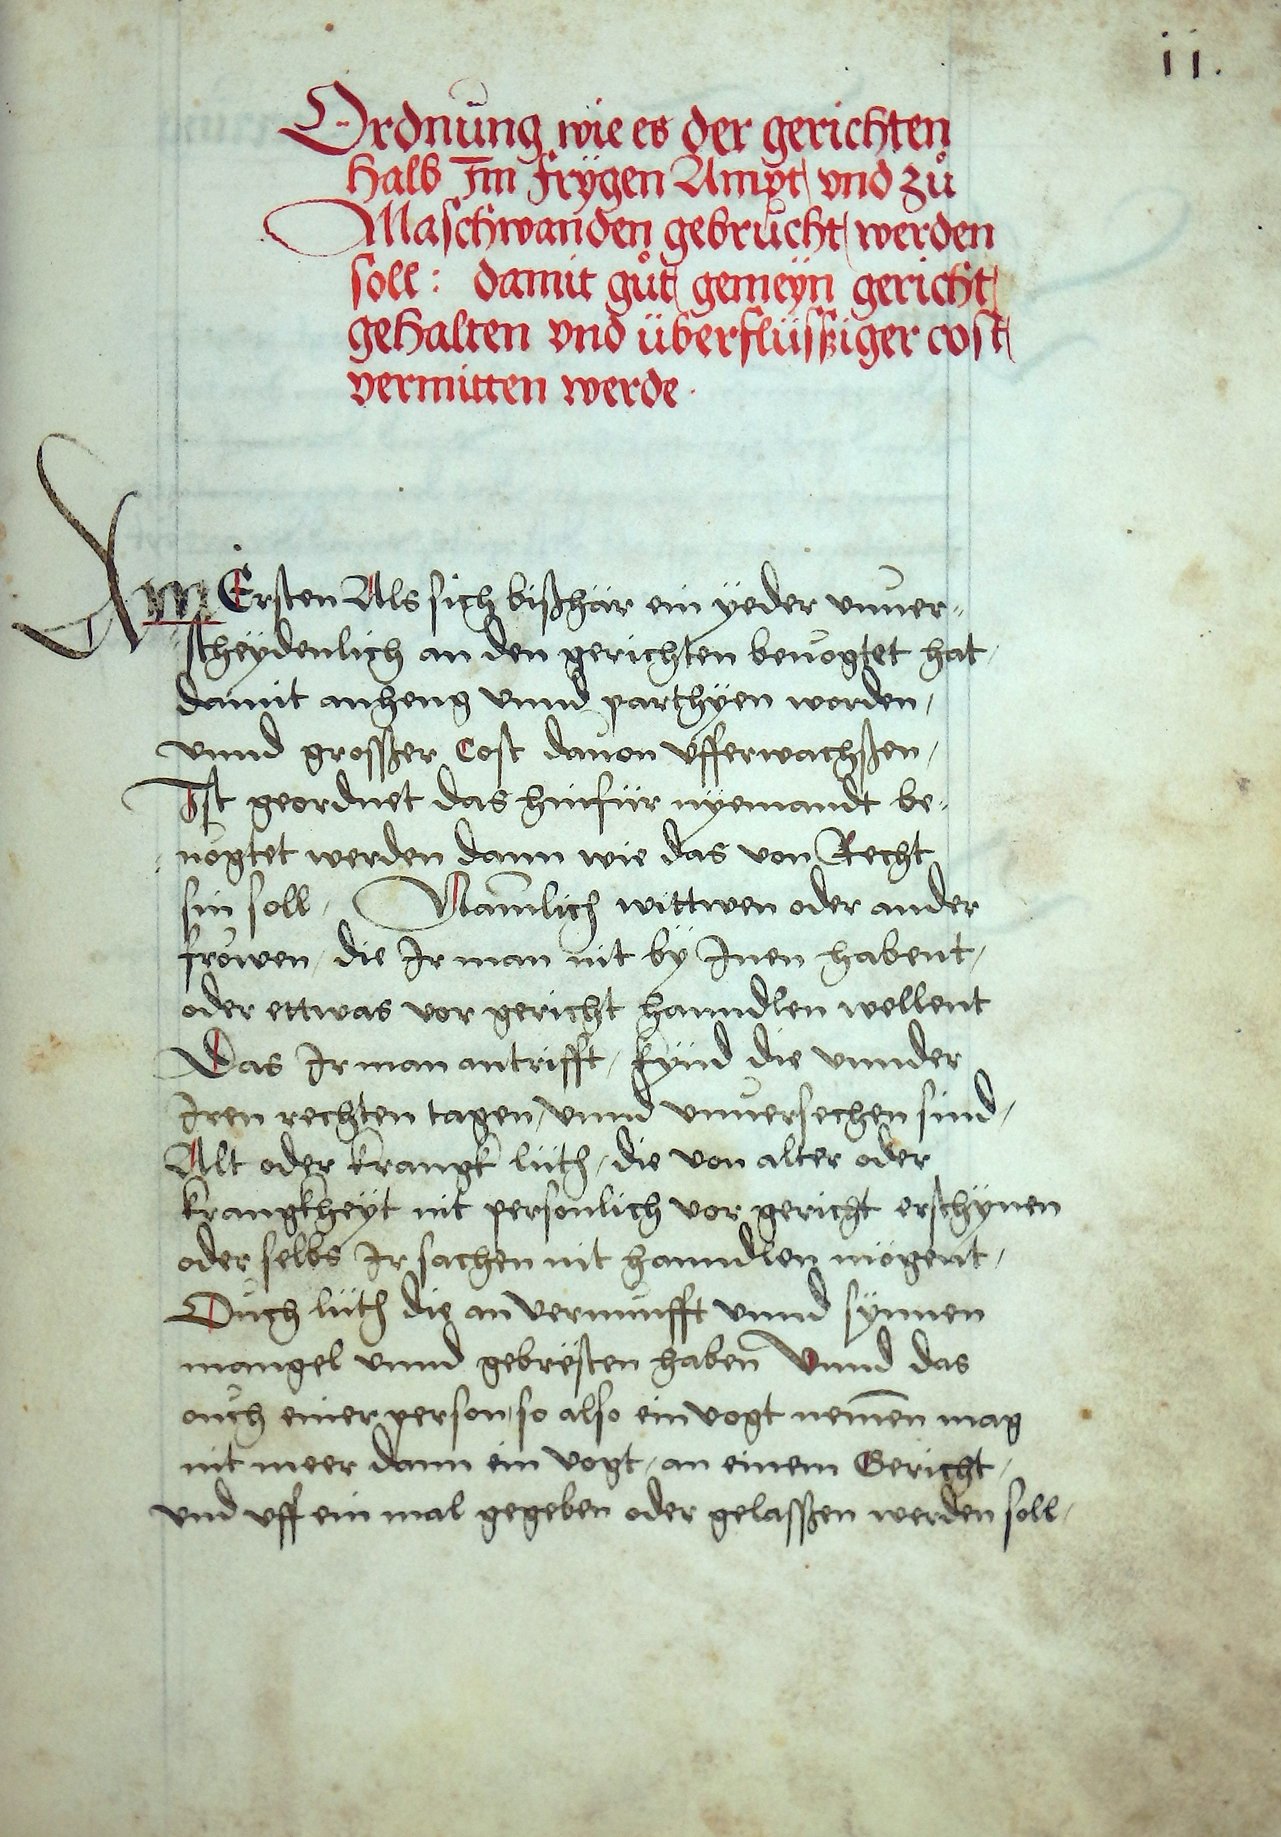 ii.
Ordnung wie es der gerichten
halb Im frÿgen Ampt, vnd zů
Maschwanden gebrucht, werden
soll: damit gůt, gemeÿn gericht,
gehalten vnd überflüsßiger cost,
vermitten werde.
Am Ersten Als sich bißhär ein ÿeder vnuer-
scheÿdenlich an den gerichten beuogtet hat,
damit anheng vnnd parthÿen worden,
vnnd grosßer Cost dauon vfferwachßen,
Ist geordnet das hinfür nÿemandt be-
uogtet werden dann wie das von Recht
sin soll, Namlich wittwen oder ander
frowen, die Ir man nit bÿ Inen habent,
oder ettwas vor gericht hanndlen wellent
Das Ir man antrifft, kÿnd die vnnder
Iren rechten tagen, vnnd vnuersechen sind,
Alt oder krangk lüth, die von alter oder
krangkheÿt nit personlich vor gericht erschÿnen
oder selbs Ir sachen nit hanndlen mögent,
Ouch lüth die an vernunfft vnnd sÿnnen
mangel vnnd gebrësten haben Vnnd das
ouch einer person, so also ein vogt nem̄en mag
nit meer dann ein vogt, an einem Gericht,
vnd vff ein mal gegeben oder gelasßen werden soll,